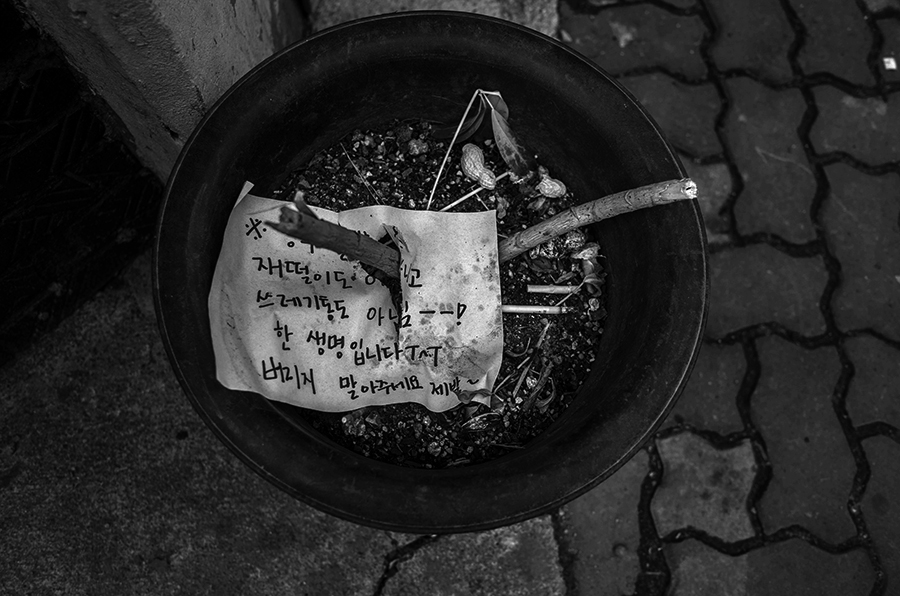 ※
재떨이도 고
쓰레기통도 아님ㅡㅡ!
한 생명입니다ㅜㅅㅜ
버리지 말아주세요 제발~